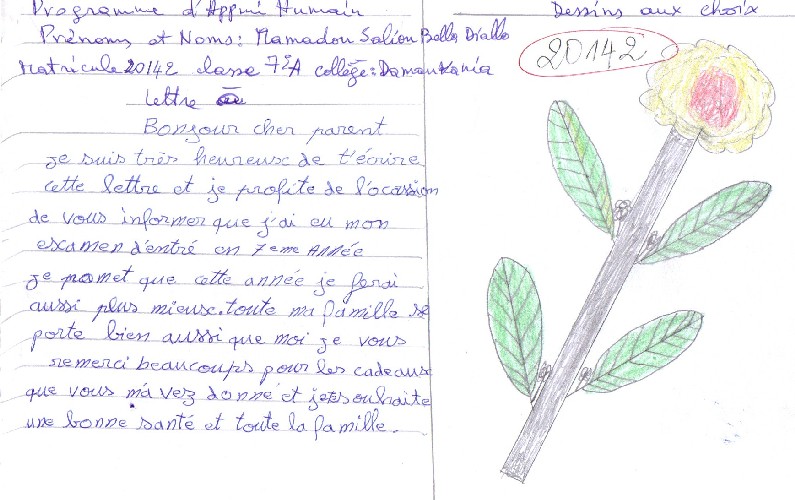 Programme d'Appui Humain
Dessins aux choix
Prénoms et Noms: Mamadou Saliou Bella Diallo
Matricule 20142 classe 7èA collège: Damankania
20142
Lettre
Bonjour cher parent
je suis très heureux de t'écrire
cette lettre et je profite de l'ocassion
de vous informer que j'ai eu mon
examen d'entré en 7eme ANNÉe
je promet que cette année je ferai
aussi plus mieux. toute ma famille se
porte bien aussi que moi je vous
remerci beaucoups pour les cadeaux
que vous m'a vez donné et je souhaite
une bonne santé et toute la famille.